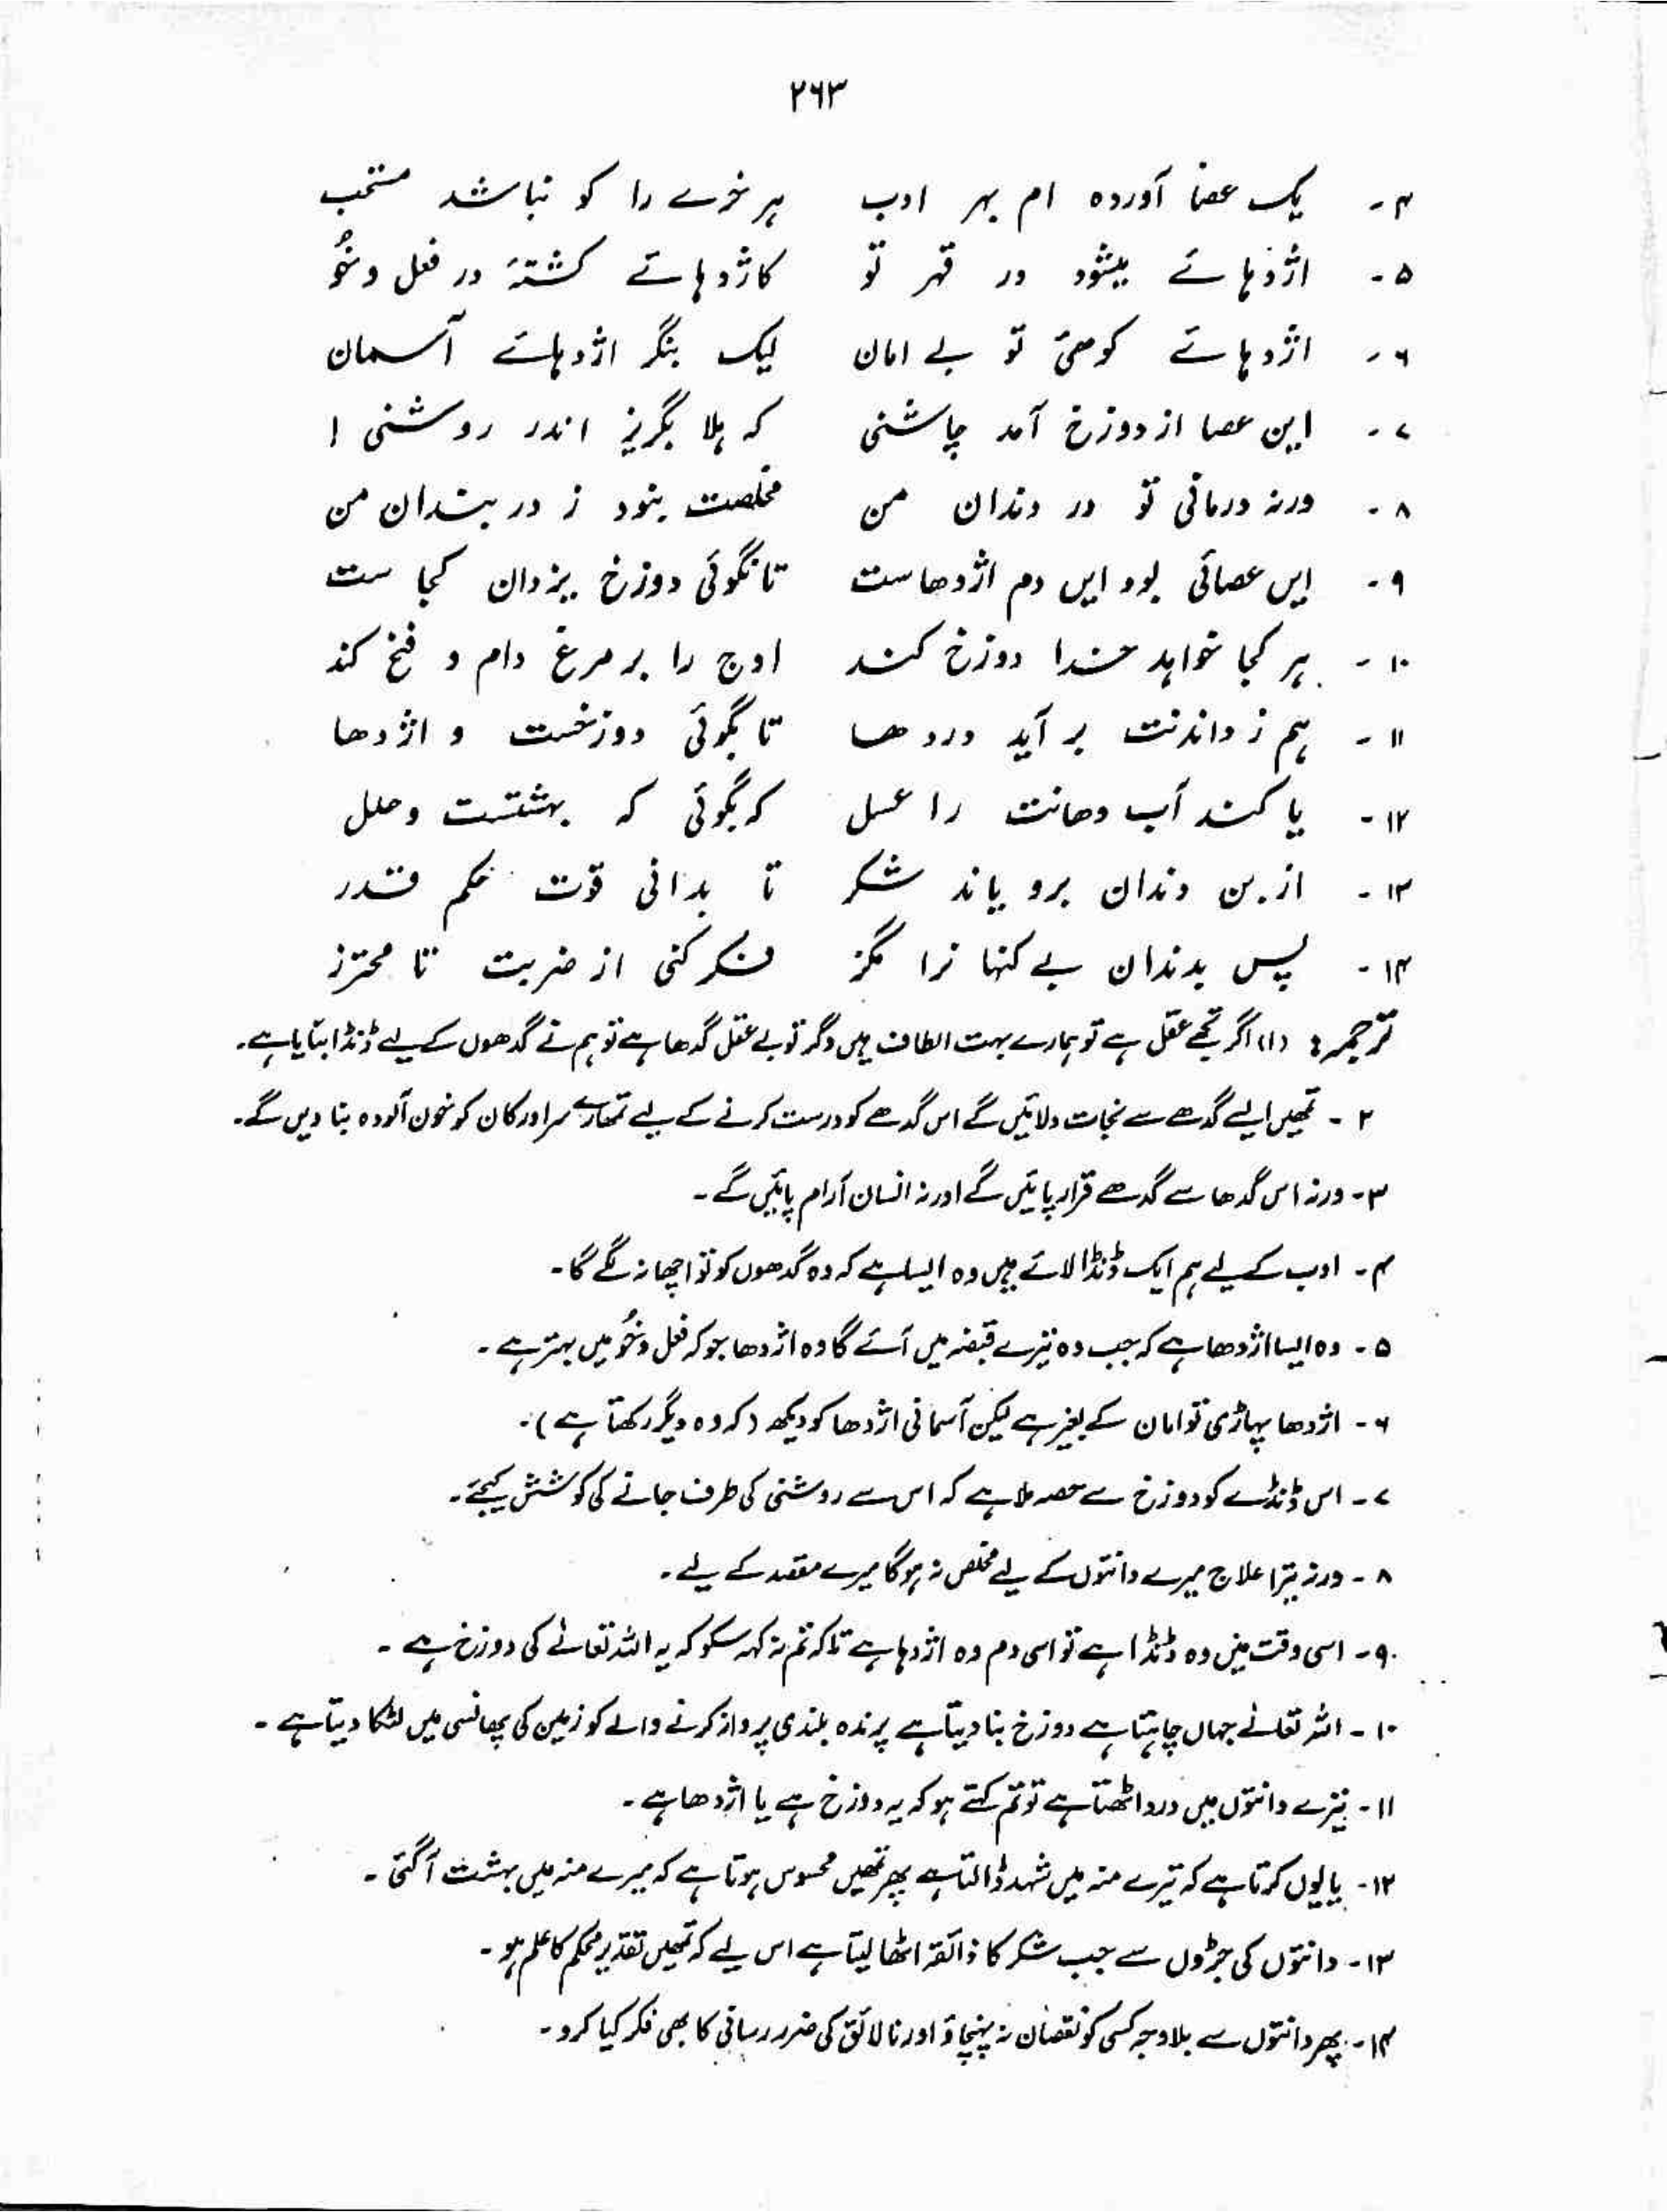 ۲۶۳
۴- یک عصا آوردہ ام بہر ادب ہر خرے را کو نباشد مستجب
۵- اژدہائے میشود در قہر تو کاژدہائے گشتۂ در فعل و خُو
۶- اژدہائے کوھئ تو بے امان لیک بنگر اژدہائے آسمان
۷- این عصا از دوزخ آمد چاشنی کہ ہلا بگریز اندر روشنی ا
۸- ورنہ درمانی تو در دندان من مخلصت نبود ز در بندان من
۹- ایں عصائی بود ایں دم اژدھاست تا نگوئی دوزخ یزدان کجا ست
۱۰- ہر کجا خواہد خدا دوزخ کند اوج را بر مرغ دام و فخ کند
۱۱- ہم ز داندنت بر آید دردھا تا بگوئی دوزخست و اژدھا
۱۲- یا کند آب دھانت را عسل کہ بگوئی کہ بہشتست و حلل
۱۳- از بن دندان برو یاند شکر تا بدانی قوت حکم قدر
۱۴- پس بدندان بے گنہا نرا مگز فکر کنی از ضربت نا محترز
ترجمہ: (۱) اگر تجھے عقل ہے تو ہمارے بہت الطاف ہیں وگر تو بے عقل گدھا ہے تو ہم نے گدھوں کے لیے ڈنڈا بنایا ہے۔
۲- تمھیں ایسے گدھے سے نجات دلائیں گے اس گدھے کو درست کرنے کے لیے تمھارے سر اور کان کو خون آلودہ بنا دیں گے۔
۳- ورنہ اس گدھا سے گدھے قرار پائیں گے اور نہ انسان آرام پائیں گے۔
۴- ادب کے لیے ہم ایک ڈنڈا لائے ہیں وہ ایسا ہے کہ وہ گدھوں کو تو اچھا نہ لگے گا۔
۵- وہ ایسا اژدھا ہے کہ جب وہ تیرے قبضہ میں آئے گا وہ اژدھا جو کہ فعل و خُو میں بہتر ہے۔
۶- اژدھا پہاڑی تو امان کے بغیر ہے لیکن آسمانی اژدھا کو دیکھ (کہ وہ دیگر رکھتا ہے)۔
۷- اس ڈنڈے کو دوزخ سے حصہ ملا ہے کہ اس سے روشنی کی طرف جانے کی کوشش کیجئے۔
۸- ورنہ تیرا علاج میرے دانتوں کے لیے مخلص نہ ہوگا میرے مقصد کے لیے۔
۹- اسی وقت میں وہ ڈنڈا ہے تو اسی دم وہ اژدہا ہے تاکہ تم نہ کہہ سکو کہ یہ اللہ تعالےٰ کی دوزخ ہے۔
۱۰- اللہ تعالےٰ جہاں چاہتا ہے دوزخ بنا دیتا ہے پرندہ بلندی پرواز کرنے والے کو زمین کی پھانسی میں لٹکا دیتا ہے۔
۱۱- تیرے دانتوں میں درد اٹھتا ہے تو تم کہتے ہو کہ یہ دوزخ ہے یا اژدھا ہے۔
۱۲- یا یوں کرتا ہے کہ تیرے منہ میں شہد ڈالتا ہے پھر تمھیں محسوس ہوتا ہے کہ میرے منہ میں بہشت آ گئی۔
۱۳- دانتوں کی جڑوں سے جب شکر کا ذائقہ اٹھا لیتا ہے اس لیے کہ تمھیں تقدیر محکم کا علم ہو۔
۱۴- پھر دانتوں سے بلاوجہ کسی کو نقصان نہ پہنچاؤ اور نالائق کی ضرر رسانی کا بھی فکر کیا کرو۔